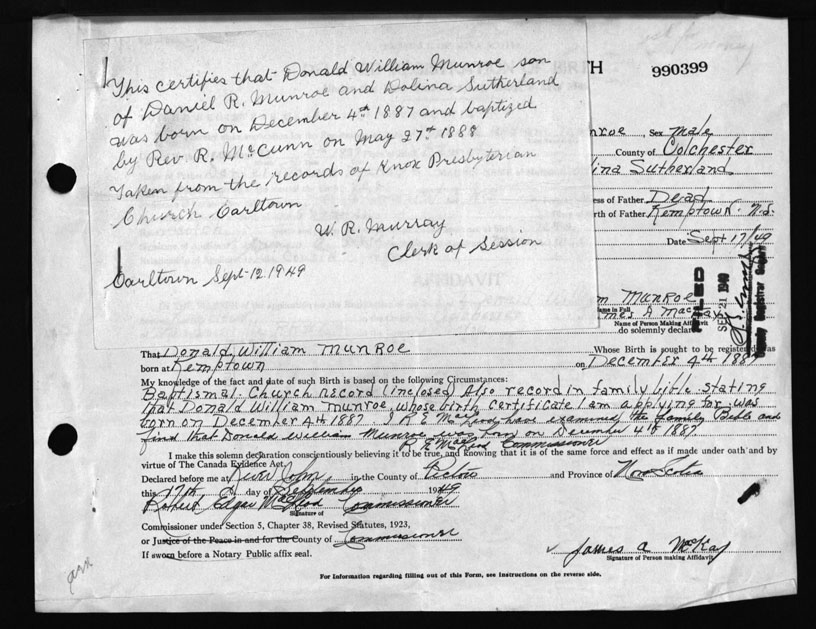 This certifies that Donald William Munroe son
of Daniel R. Munroe and Dolina Sutherland
was born on December 4th 1887 and baptized
by Rev. R. McCunn on May 27th 1888
Taken from the records of Knox Presbyterian
Church Earltown
W. R. Murray
Clerk of Session
Earltown Sept-12, 1949
TH 990399
nroe, Sex Male
County of Colchester
lina Sutherland
ess of Father Dead
rth of Father Kemptown N.S.
Date Sept 17/49
FILED
SEP 21 1949
Deputy Registrar
m Munroe
ame in Full
mes A MacKay
Name of Person Making Affidavit
do solemnly declare
That Donald William Munroe Whose Birth is sought to be registered was
born at Kemptown on December 4th 1887
My knowledge of the fact and date of such Birth is based on the following Circumstances:
Baptismal Church record (inclosed) Also record in family bible stating
that Donald William Munroe, whose birth certificate I am applying for, was
born on December 4th 1887. I R E McLeod have examined the family Bible and
find that Donald William Munroe was born on December 4th 1887
R E MacLeod Commissioner
I make this solemn declaration conscientiously believing it to be true, and knowing that it is of the same force and effect as if made under oath and by
virtue of The Canada Evidence Act.
Declared before me at River John in the County of Pictou and Province of Nova Scotia
this 17th day of September 1949
Robert Edgar MacLeod Commissioner
Signature of
Commissioner under Section 5, Chapter 38, Revised Statutes, 1923,
or Justice of the Peace in and for the County of Commissioner
If sworn before a Notary Public affix seal.
James A McKay
Signature of Person making Affidavit
For Information regarding filling out of this Form, see Instructions on the reverse side.